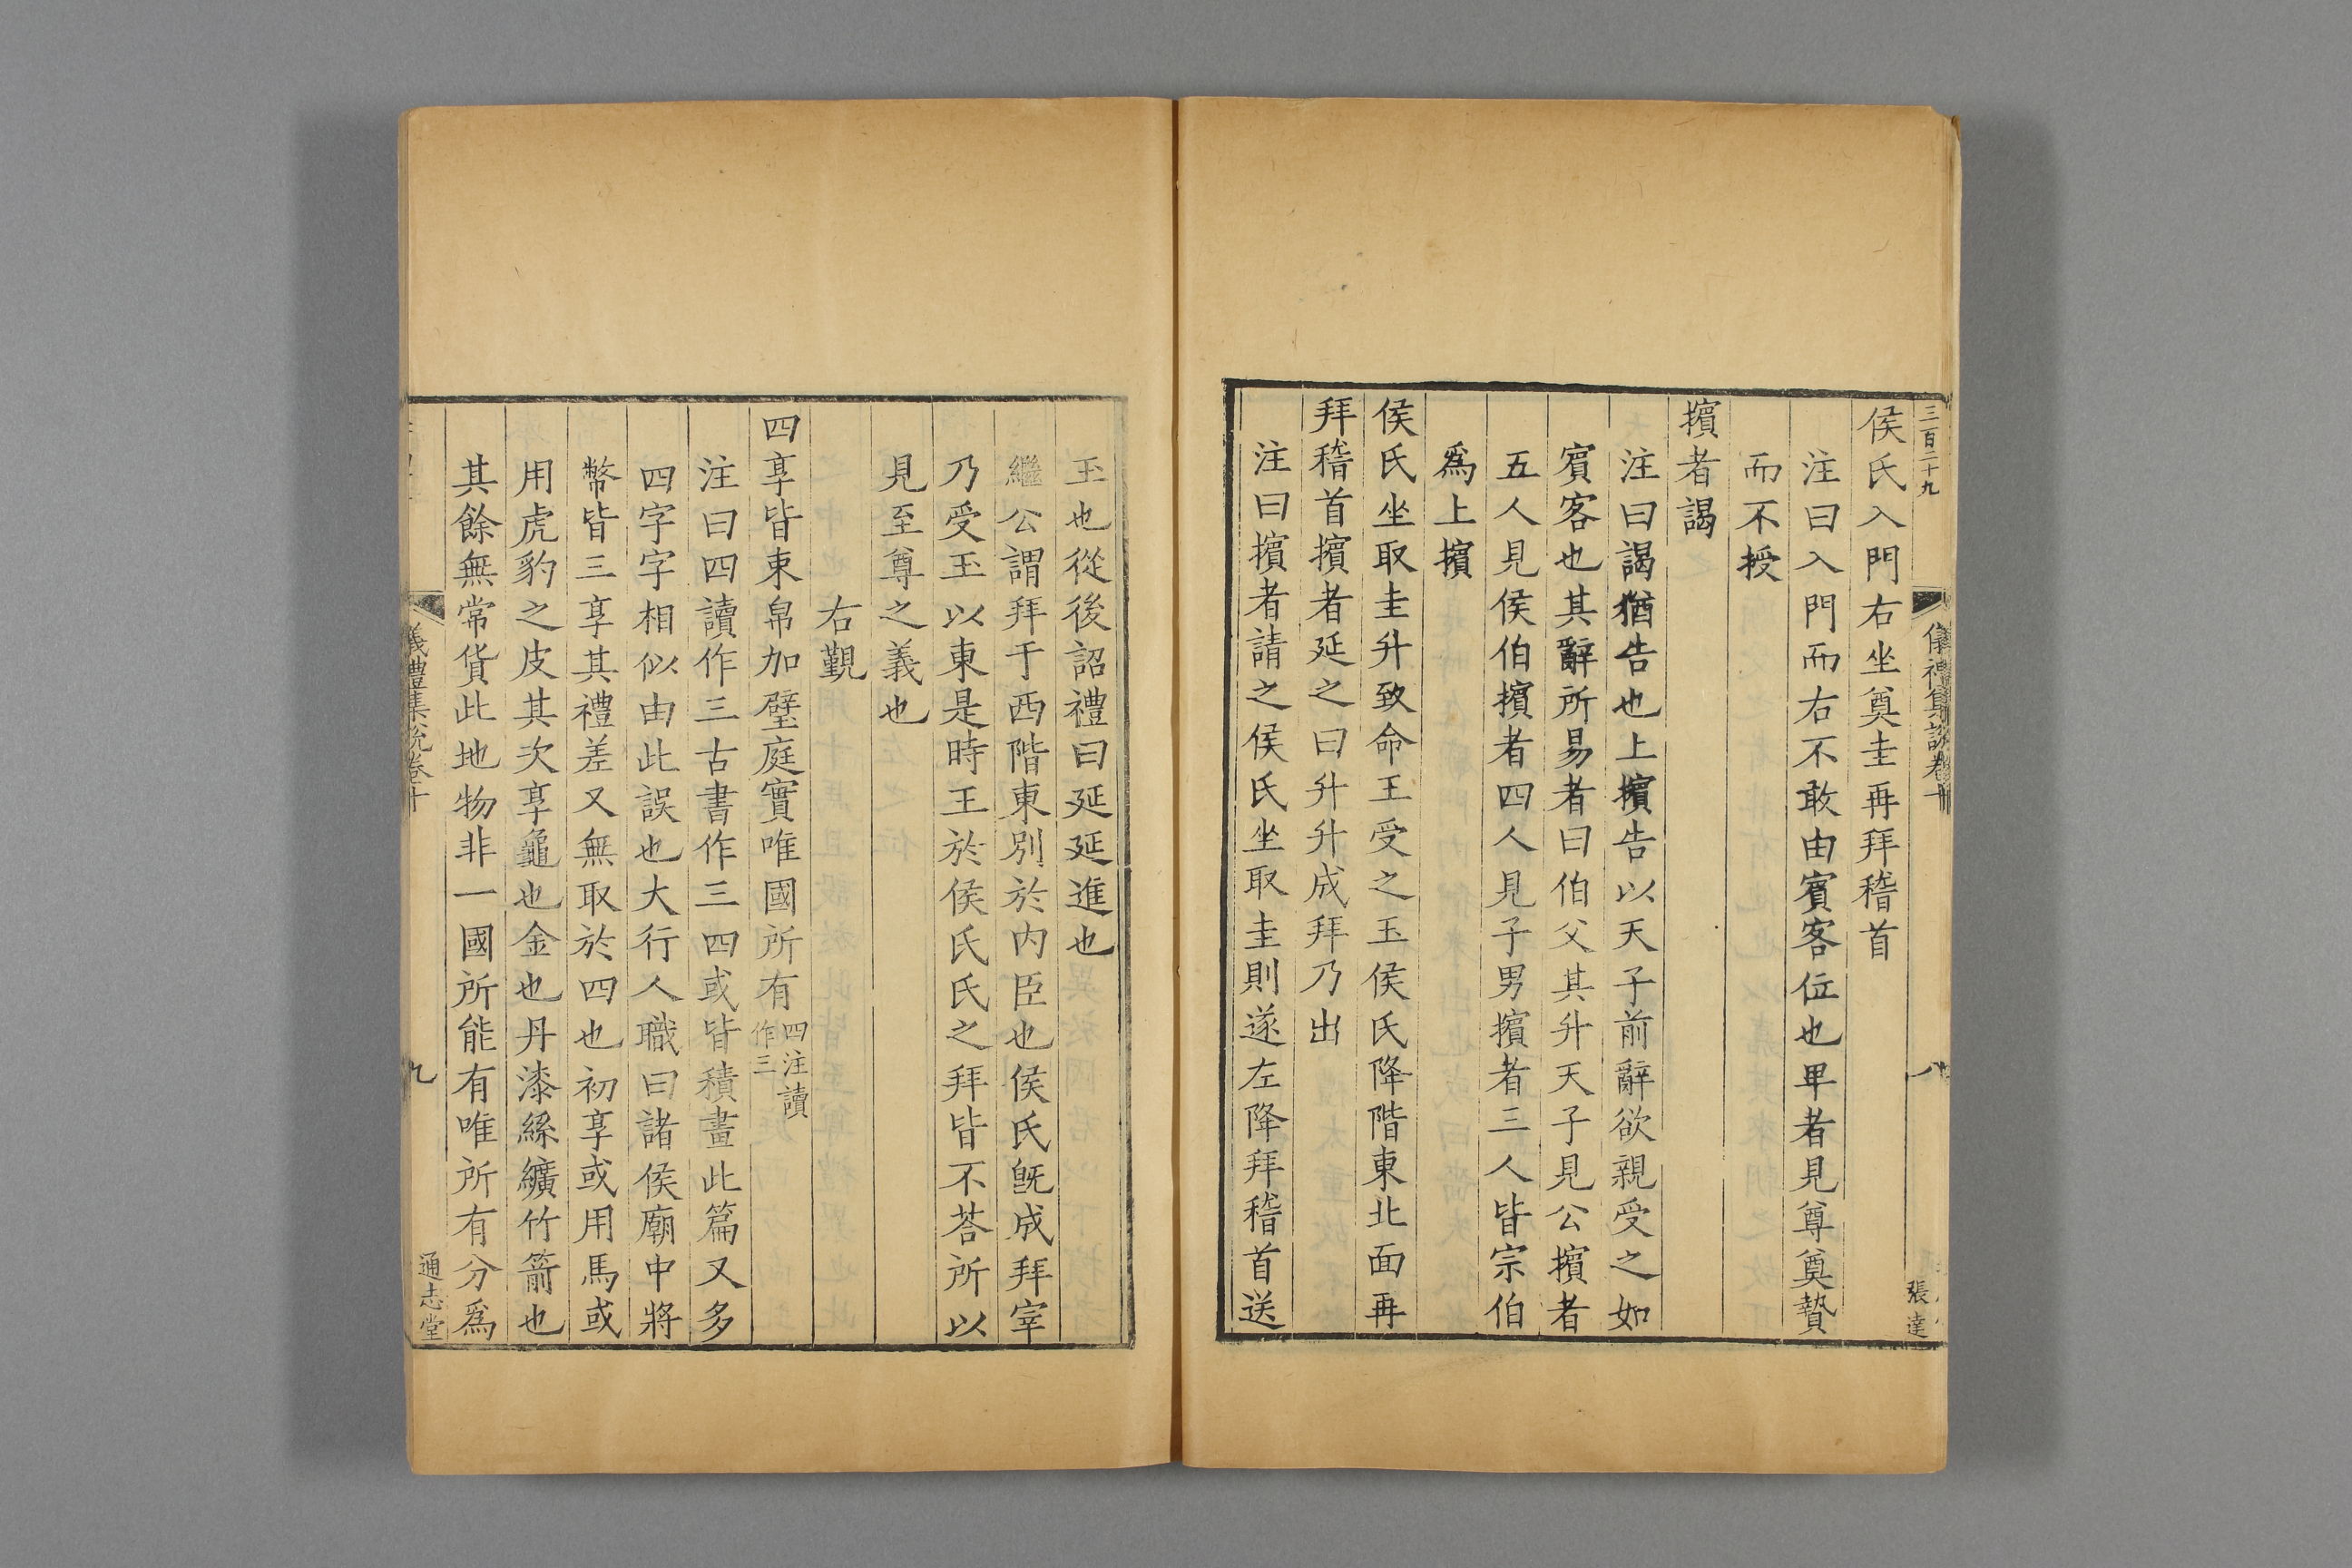 三百二十九
儀禮集說卷十
八
張達
侯氏入門右坐奠圭再拜稽首
注曰入門而右不敢由賓客位也卑者見尊奠贄
而不授
擯者謁
注曰謁猶告也上擯告以天子前辭欲親受之如
賓客也其辭所易者曰伯父其升天子見公擯者
五人見侯伯擯者四人見子男擯者三人皆宗伯
爲上擯
侯氏坐取圭升致命王受之玉侯氏降階東北面再
拜稽首擯者延之曰升升成拜乃出
注曰擯者請之侯氏坐取圭則遂左降拜稽首送
玉也從後詔禮曰延延進也
繼公謂拜于西階東別於內臣也侯氏旣成拜宰
乃受玉以東是時王於侯氏氏之拜皆不荅所以
見至尊之義也
右覲
四享皆束帛加璧庭實唯國所有四注讀作三
注曰四讀作三古書作三四或皆積畫此篇又多
四字字相似由此誤也大行人職曰諸侯廟中將
幣皆三享其禮差又無取於四也初享或用馬或
用虎豹之皮其次享龜也金也丹漆絲纊竹箭也
其餘無常貨此地物非一國所能有唯所有分爲
儀禮集說卷十
九
通志堂